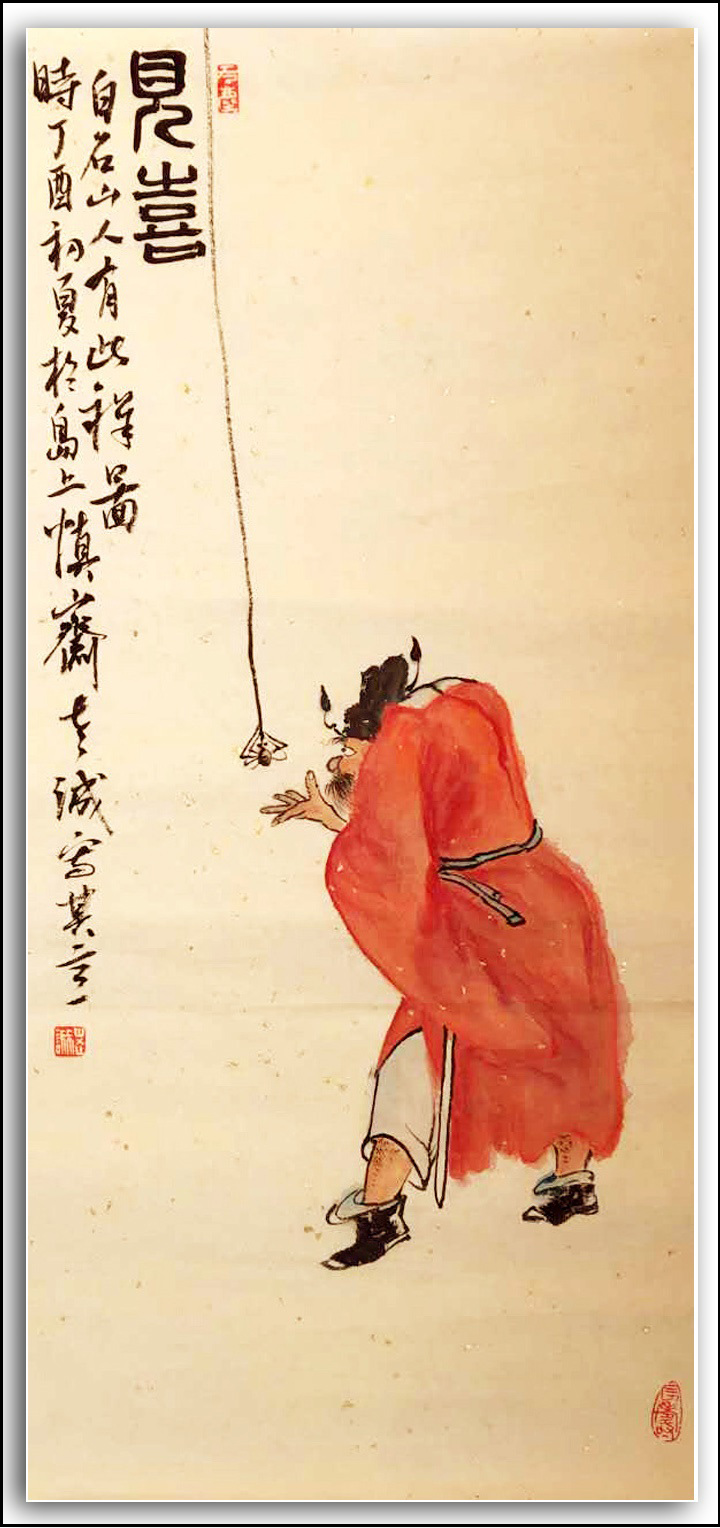 見喜
白石山人有此祥圖
時丁酉初夏於島上慎齋老誠寫其意